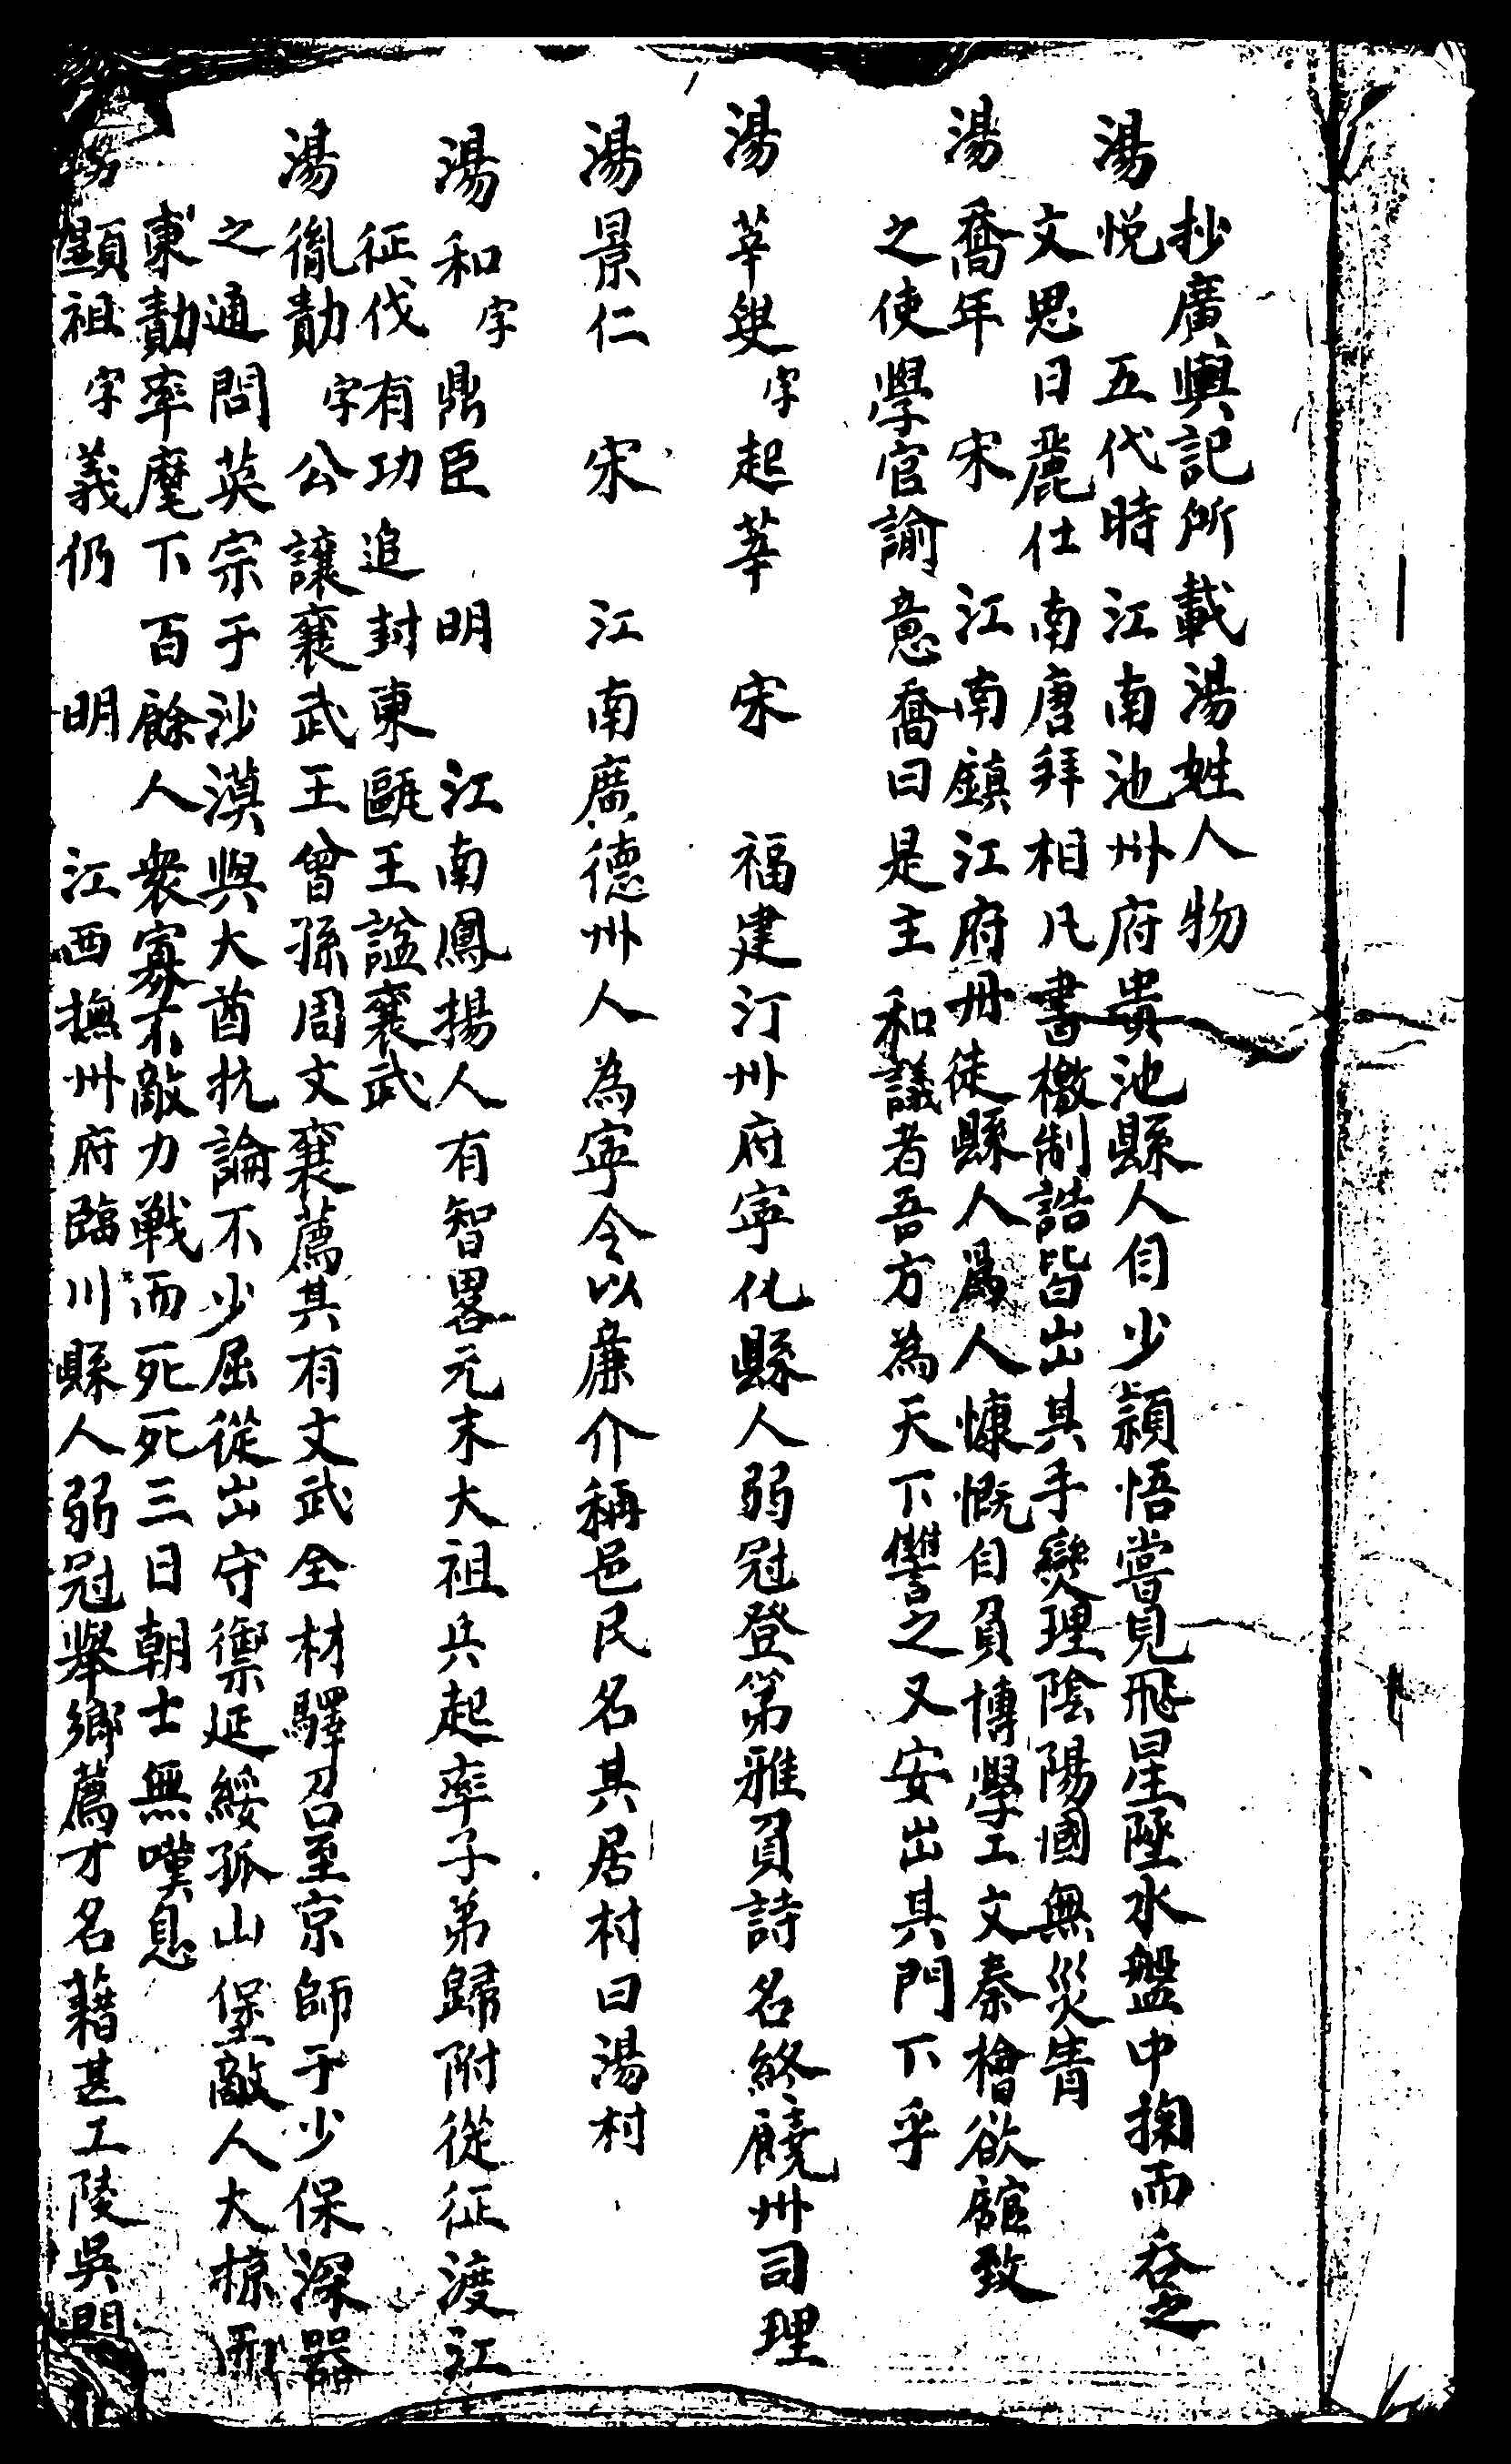 抄廣輿記所載湯姓人物
湯悦 五代時 江南池州府貴池縣人自少穎悟嘗見飛星墜水盤中掬而吞之
文思日麗仕南唐拜相凡書檄制誥皆出其手燮理陰陽國無災眚
湯喬年 宋 江南鎮江府丹徒縣人爲人慷慨自負博學工文秦檜欲館致
之使學官諭意喬曰是主和議者吾方為天下讐之又安出其門下乎
湯莘叟字起莘 宋 福建汀州府寕化縣人弱冠登第雅負詩名終饒州司理
湯景仁 宋 江南廣德州人為寕令以廉介稱邑民名其居村曰湯村
湯和字鼎臣 明 江南鳳揚人有智畧元末大祖兵起率子弟歸附從征渡江
征伐有功追封東甌王謚襄武
湯胤勣字公讓襄武王曾孫周文襄薦其有文武全材驛召至京師于少保深器
之通問英宗于沙漠與大酋抗論不少屈從出守禦延綏孤山堡敵人大掠而
東勣率麾下百餘人衆寡不敵力戰而死死三日朝士無嘆息
湯顯祖字義仍 明 江西撫州府臨川縣人弱冠舉鄉薦才名藉甚工陵吳門